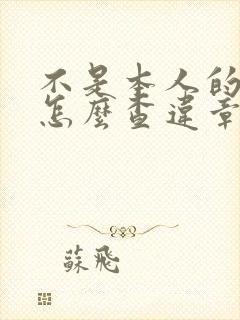 不是本人的
怎麼查違章
蘇飛